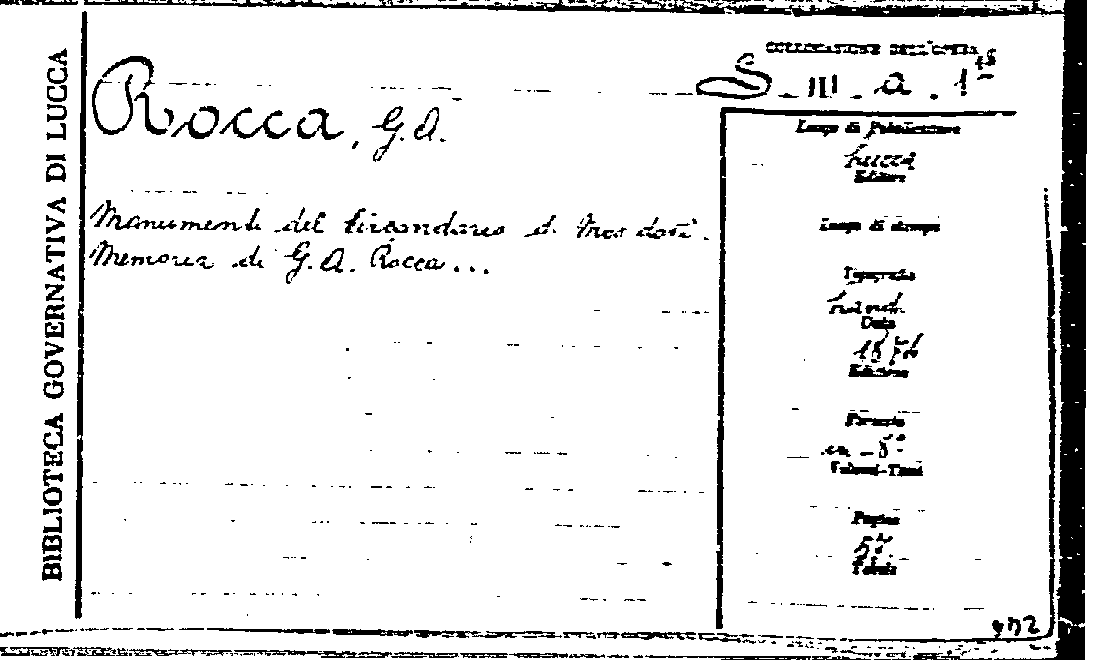 BIBLIOTECA GOVERNATIVA DI LUCCA
COLLOCAZIONE DELL'OPERA
S - III - a . 1
Rocca, G.A.
Monumenti del Circondario di
Memoria di G.A. Rocca...
Luogo di Pubblicazione
Lucca
Editore
Luogo di stampa
Tipografia
Data
1876
Edizione
Formato
in - 8°
Volumi-Tomi
Pagine
Tavole